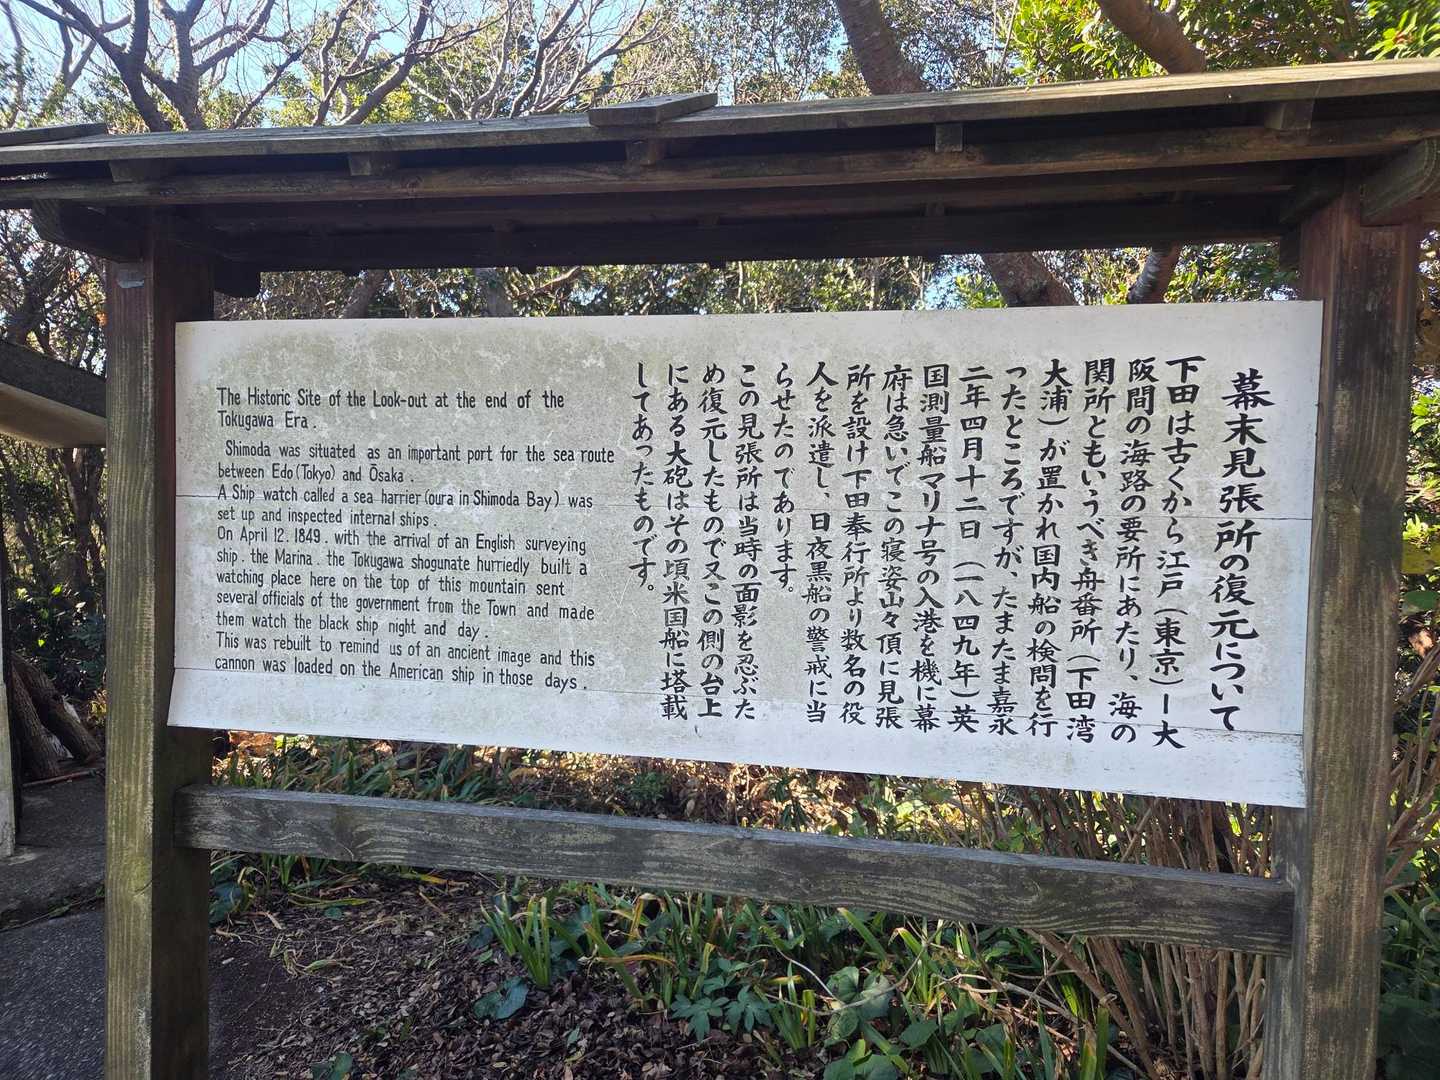 幕末見張所の復元について
下田は古くから江戸（東京）ー大
阪間の海路の要所にあたり、海の
関所ともいうべき舟番所（下田湾
大浦）が置かれ国内船の検問を行
ったところですが、たまたま嘉永
二年四月十二日（一八四九年）英
国測量船マリナ号の入港を機に幕
府は急いでこの寝姿山々頂に見張
所を設け下田奉行所より数名の役
人を派遣し、日夜黒船の警戒に当
らせたのであります。
この見張所は当時の面影を忍ぶた
め復元したもので又この側の台上
にある大砲はその頃米国船に塔載
してあったものです。
The Historic Site of the Look-out at the end of the
Tokugawa Era.
Shimoda was situated as an important port for the sea route
between Edo(Tokyo) and Ōsaka.
A Ship watch called a sea harrier(oura in Shimoda Bay) was
set up and inspected internal ships.
On April 12. 1849. with the arrival of an English surveying
ship. the Marina. the Tokugawa shogunate hurriedly built a
watching place here on the top of this mountain sent
several officials of the government from the Town and made
them watch the black ship night and day.
This was rebuilt to remind us of an ancient image and this
cannon was loaded on the American ship in those days.